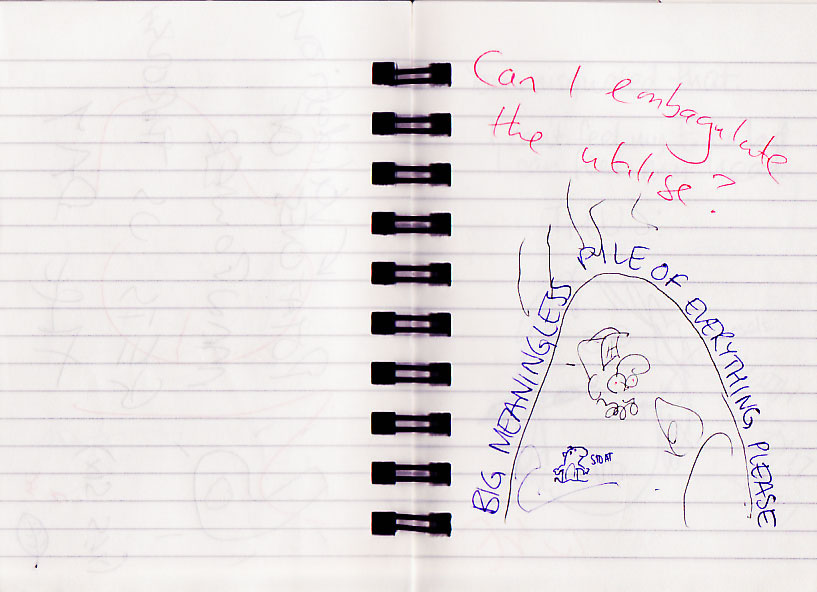 Can I embagulate
the utilise?
BIG MEANINGLESS PILE OF EVERYTHING PLEASE
STOAT